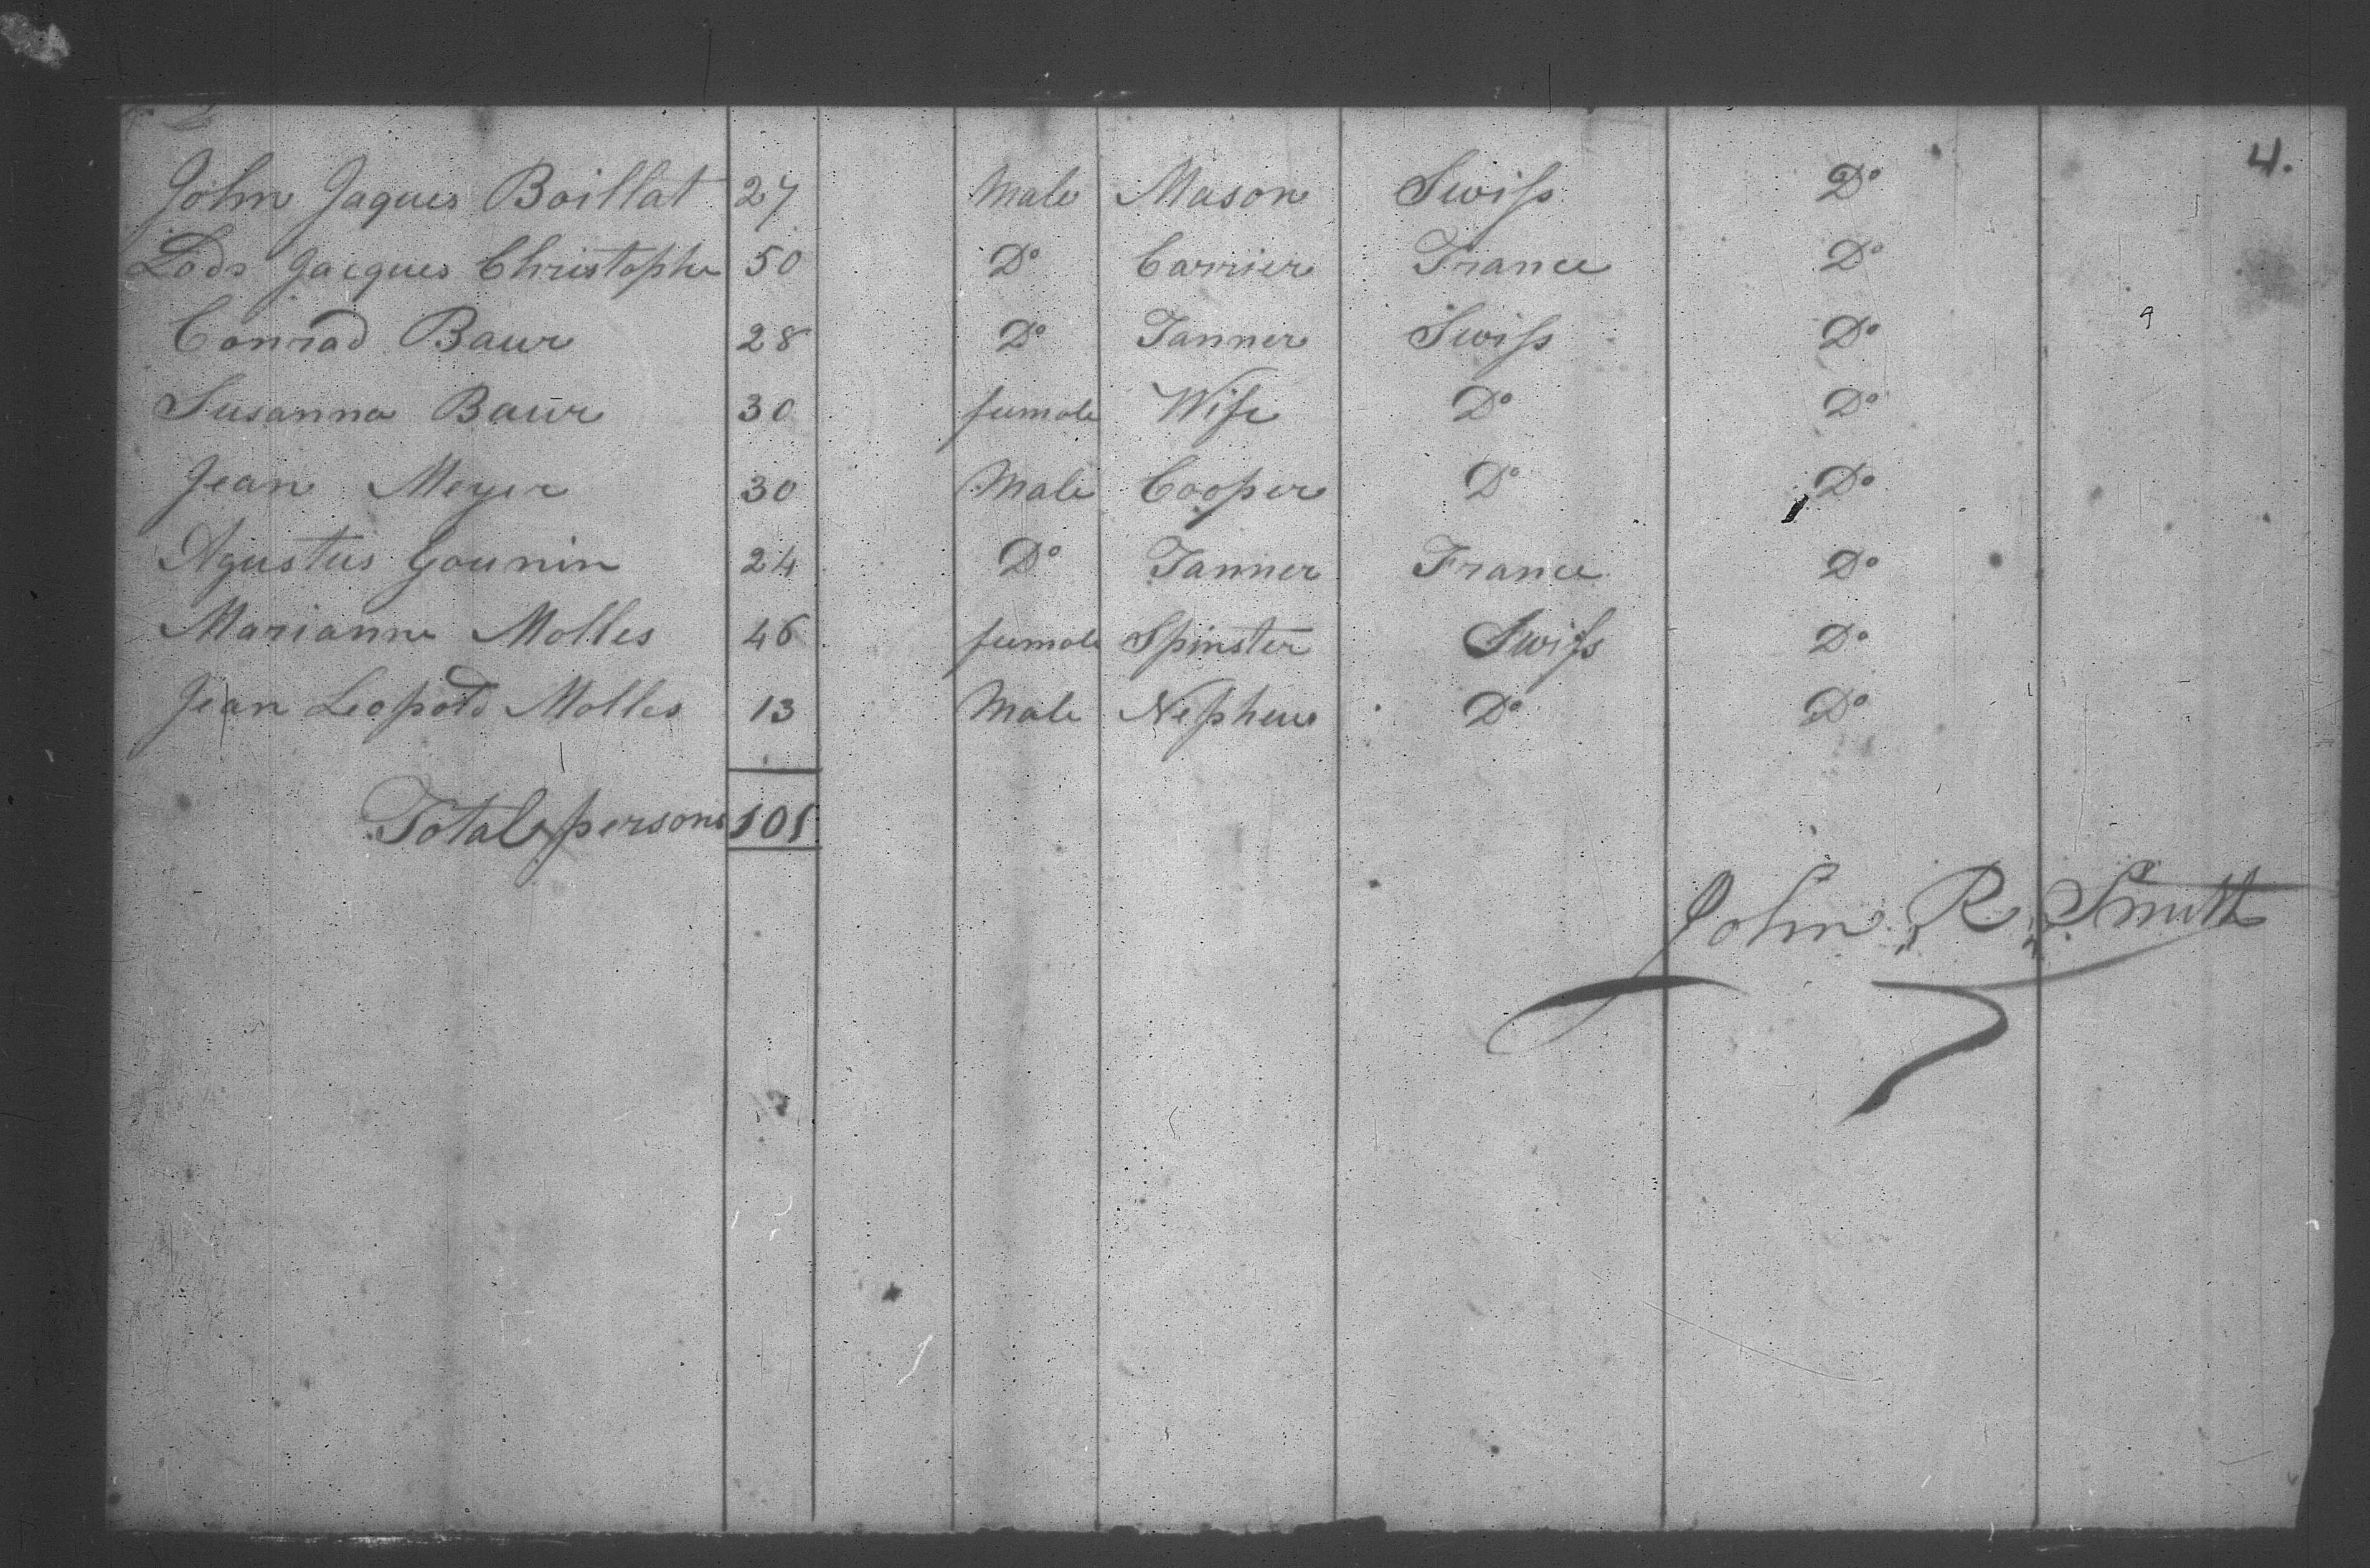 4.
John Jaques Boillat 27 Male Mason Swiss Do
Lods Jacques Christophe 50 Do Carrier France Do
Conrad Baur 28 Do Tanner Swiss Do
Susanna Baur 30 female Wife Do Do
Jean Meyer 30 Male Cooper Do Do
Agustus Gounin 24 Do Tanner France Do
Marianne Molles 46 female Spinster Swiss Do
Jean Leopold Molles 13 Male Nephew Do Do
Total persons 101
John R. Smith